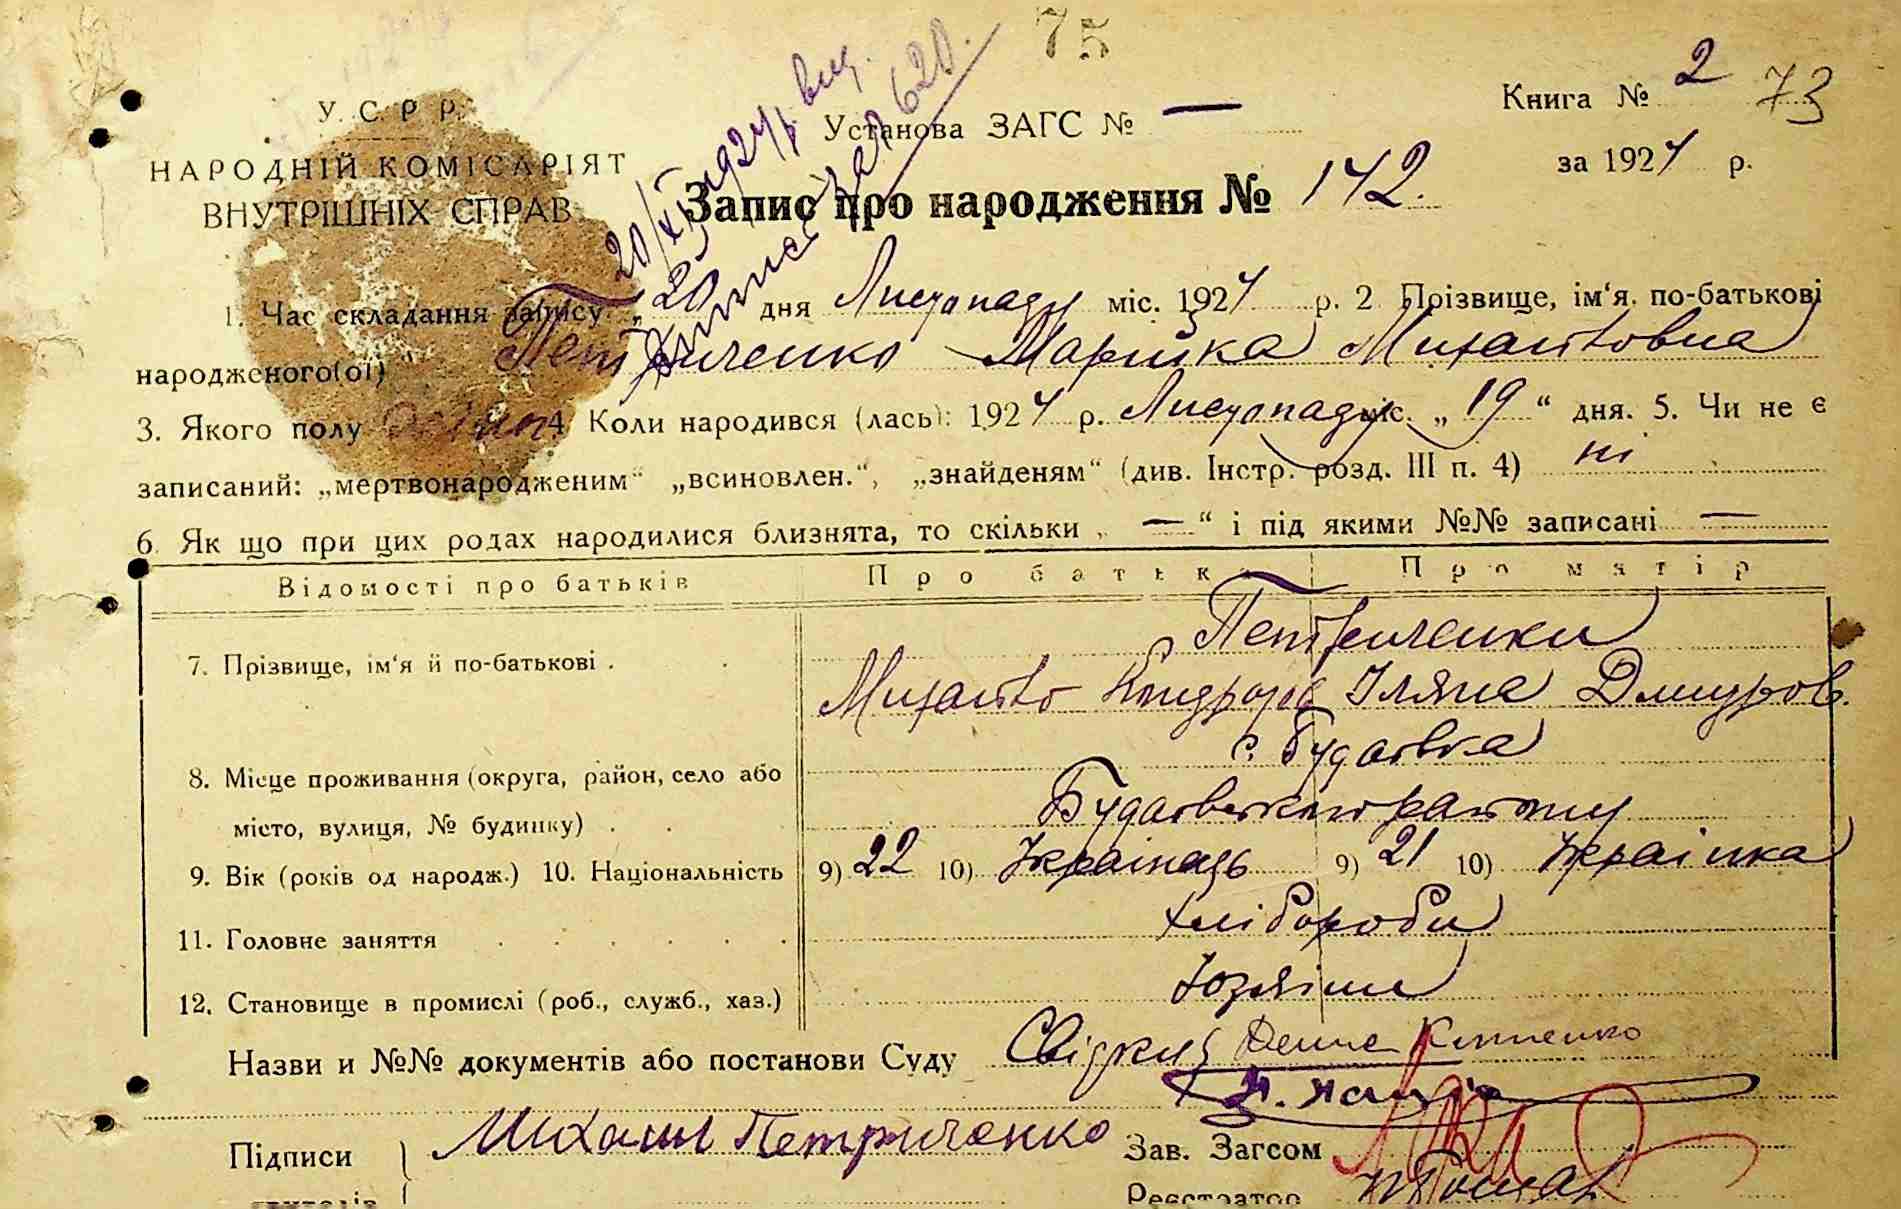 75
Книга № 2 73
У. С. Р. Р.
Установа ЗАГС № —
за 1924 р.
НАРОДНІЙ КОМІСАРІЯТ
ВНУТРІШНІХ СПРАВ
Запис про народження № 142.
20/XI 1924 р. вид.
виписі за № 620.
1. Час складання запису „20 дня Листопаду міс. 1924 р. 2 Прізвище, ім‘я, по-батькові
народженого(ої) Петриченко Марійка Михайловна
3. Якого полу 4 Коли народився (лась): 1924 р. Листопаду міс. „19“ дня. 5. Чи не є
записаний: „мертвонародженим“ „всиновлен.“, „знайденям“ (див. Інстр. розд. III п. 4) ні
6. Як що при цих родах народилися близнята, то скільки „ — “ і під якими №№ записані —
Відомості про батьків Про батька Про матір
Петриченки
7. Прізвище, ім‘я й по-батькові . Михайло Уляна Дмитров.
с. Будаївка
8. Місце проживання (округа, район, село або
місто, вулиця, № будинку) . Будаївського району
9. Вік (років од народж.) 10. Національність 9) 22 10) Українець 9) 21 10) Українка
11. Головне заняття хлібороби
12. Становище в промислі (роб., служб., хаз.) Хозяїни
Назви и №№ документів або постанови Суду Свідки
Підписи Михаил Петриченко Зав. Загсом
Реєстратор